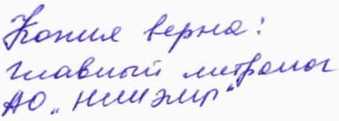 Копия верна:
Главный метролог
АО „НИИЭМР“